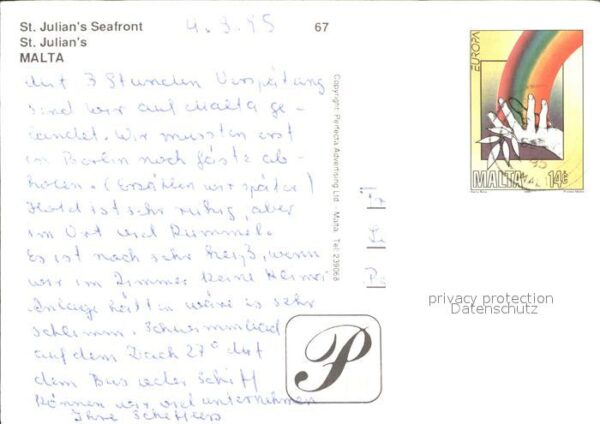 St. Julian's Seafront
St. Julian's
MALTA
67
4.9.95
Mit 3 Stunden Verspätung
sind wir auf Malta ge-
landet. Wir mussten erst
in Berlin noch Gäste ab-
holen. (Erzählen wir später)
Hotel ist sehr ruhig, aber
im Ort viel Rummel.
Es ist noch sehr heiß, wenn
wir im Zimmer keine
Anlage hätten wäre es sehr
schlimm. Schwimmbad
auf dem Dach 27° mit
dem Bus oder Schiff
können wir viel unternehmen
Ihre
Copyright: Perfecta Advertising Ltd. - Malta. Tel: 239068
EUROPA
MALTA 14c
P
privacy protection
Datenschutz